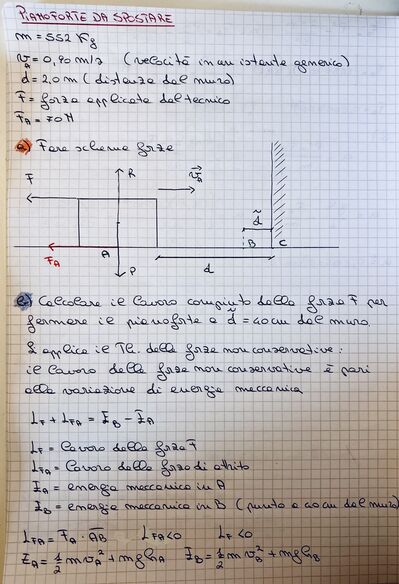 PIANOFORTE DA SPOSTARE
m = 552 Kg
v_A = 0,90 m/s (velocità in un istante generico)
d = 2,0 m (distanza dal muro)
F⃗ = forza applicata dal tecnico
F⃗_A = 70 N
a) Fare schema forze
R
F
v⃗_A
d̃
A
B
C
F_A
P
d
b) Calcolare il lavoro compiuto dalla forza F⃗ per
fermare il pianoforte a d̃ = 40 cm dal muro.
Si applica il Th. delle forze non conservative:
il lavoro delle forze non conservative è pari
alla variazione di energia meccanica
L_F + L_FA = E_B - E_A
L_F = lavoro della forza F⃗
L_FA = lavoro della forza di attrito
E_A = energia meccanica in A
E_B = energia meccanica in B (punto a 40 cm dal muro)
L_FA = F⃗_A · AB L_FA < 0 L_F < 0
E_A = 1/2 m v_A² + m g h_A E_B = 1/2 m v_B² + m g h_B